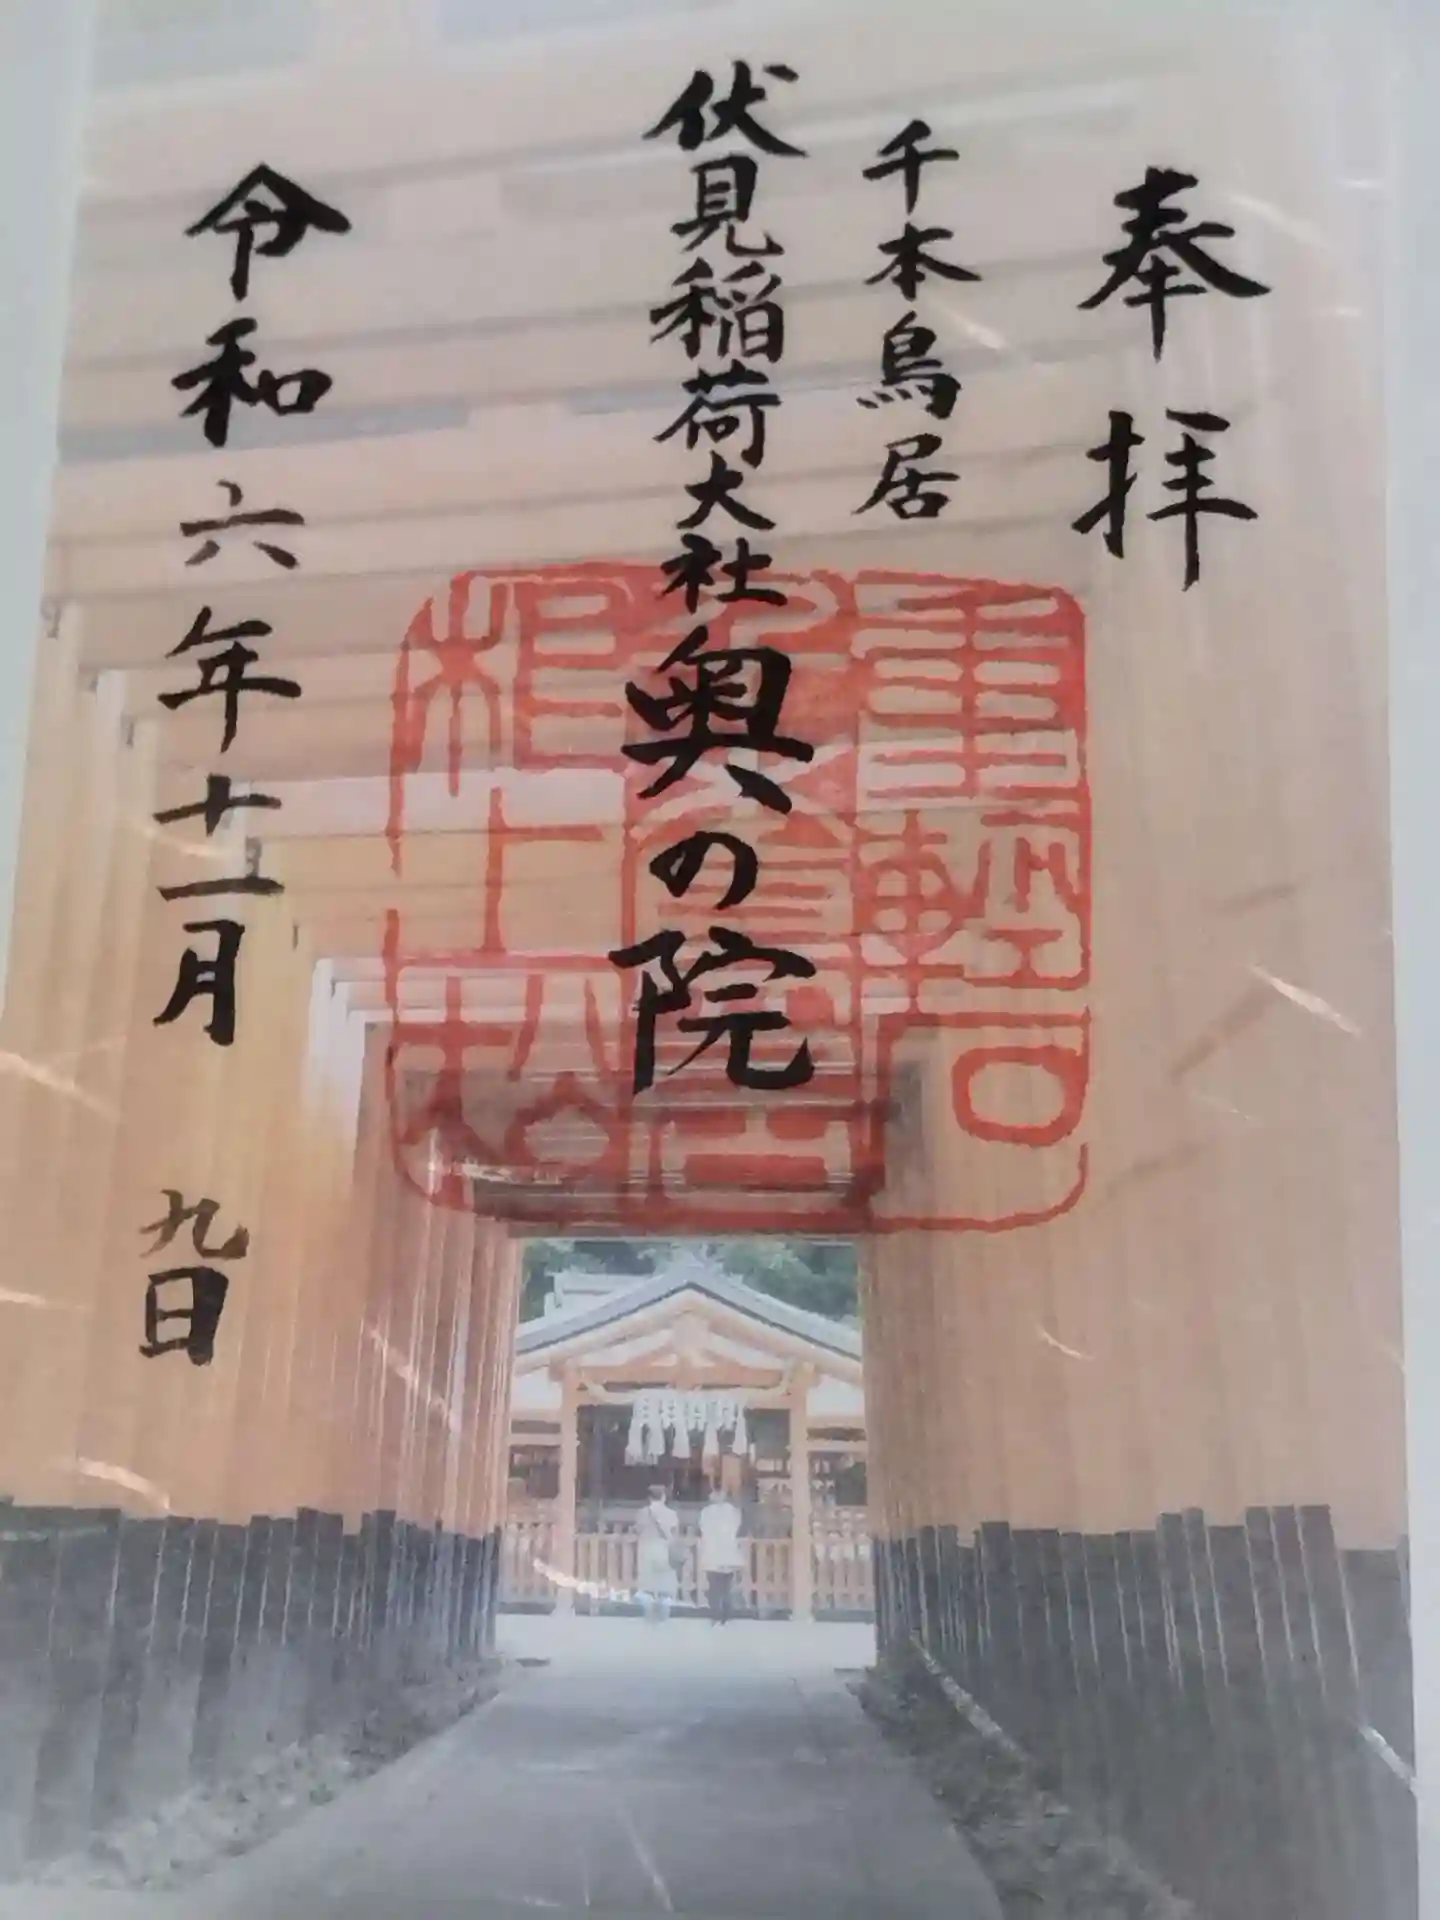 奉拝
千本鳥居
伏見稲荷大社奥の院
重軽石
根上松
令和六年十一月九日